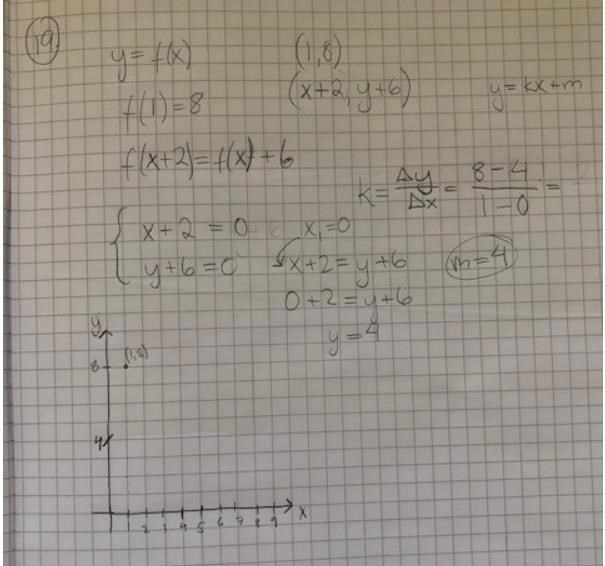 19
y = f(x) (1,8)
f(1) = 8 (x+2, y+6) y = kx+m
f(x+2) = f(x) + 6
k = Δy/Δx = 8-4/1-0 =
{ x+2 = 0 x₁=0
y+6 = 0 x+2 = y+6 m=4
0+2 = y+6
y = 4
y
8 (1,8)
4
1 2 3 4 5 6 7 8 9 x